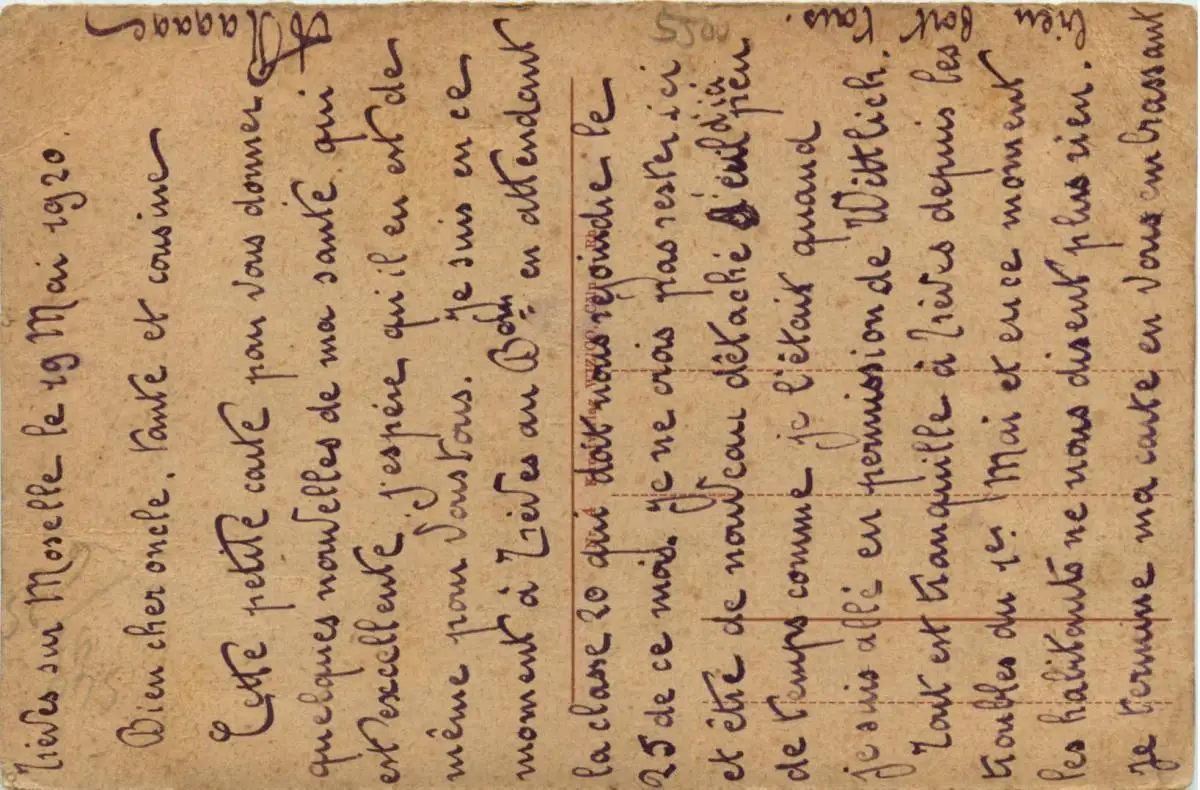 Zièves sur Moselle le 19 Mai 1920.
Bien cher oncle, tante et cousine
Cette petite carte pour vous donner
quelques nouvelles de ma santé qui
est excellente. J'espère qu'il en est de
même pour vous tous. Je suis en ce
moment à Zièves au Bon en attendant
la classe 20 qui doit nous rejoindre le
25 de ce mois. Je ne crois pas rester ici
et être de nouveau détaché d'ici
peu
de temps comme je l'était quand
je suis allé en permission de Wittlich.
Tout est tranquille à Zièves depuis les
troubles du 1er Mai et en ce moment
les habitants ne nous disent plus rien.
je termine ma carte en vous embrassant
bien fort tous.